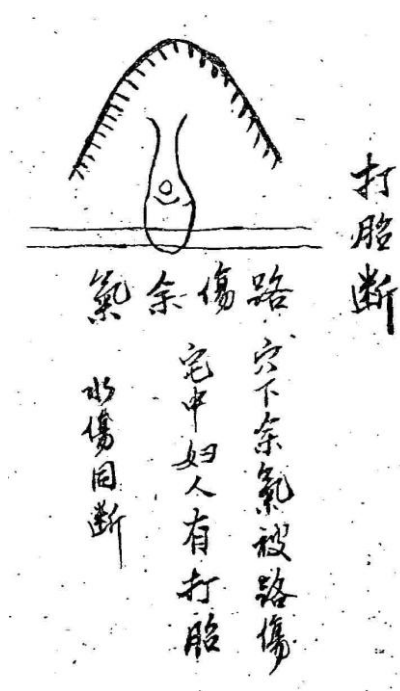 打胎断
路傷余氣
穴下余氣被路傷
宅中妇人有打胎
水傷同断